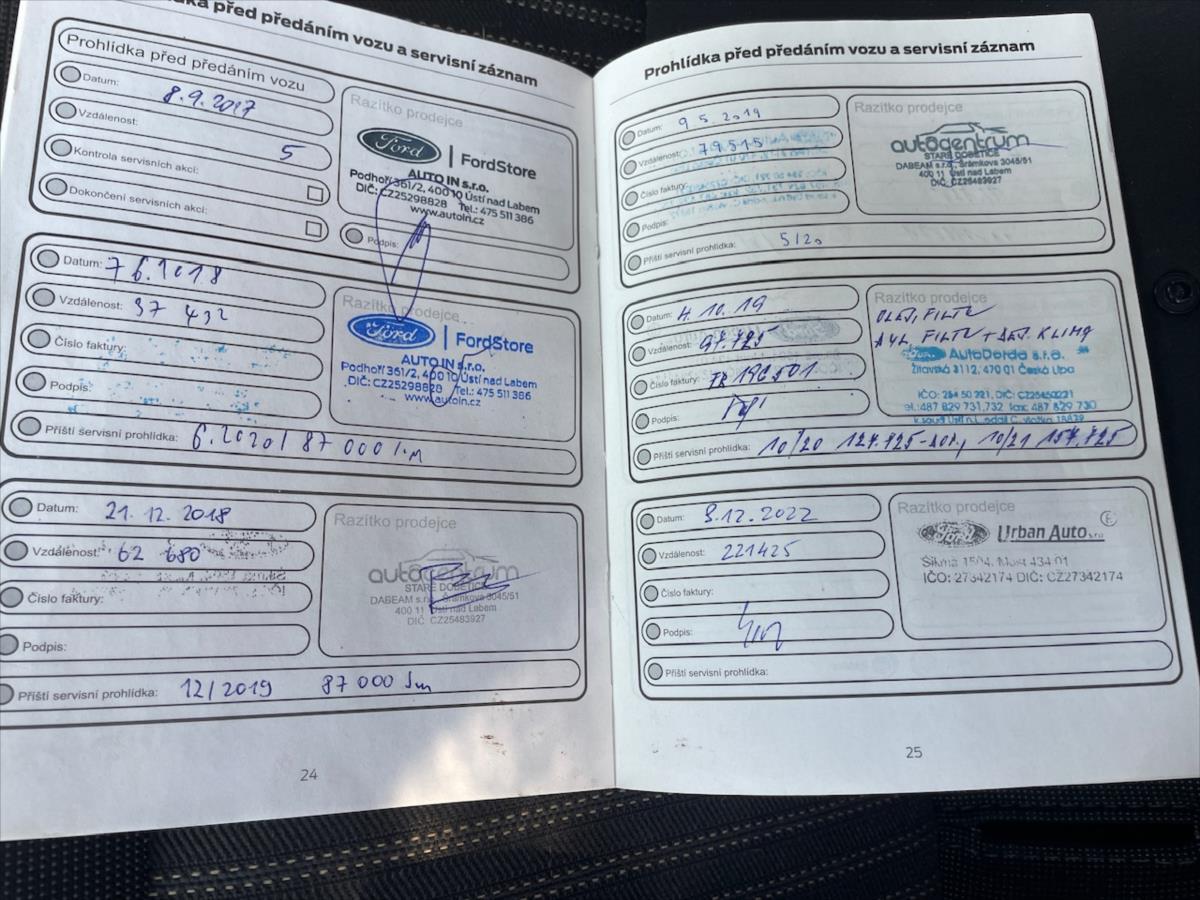 ka před předáním vozu a servisní záznam
Prohlídka před předáním vozu
Datum: 8.9.2017
Vzdálenost: 5
Kontrola servisních akcí:
Dokončení servisních akcí:
Razítko prodejce
Ford | FordStore
AUTO IN s.r.o.
Podhoří 361/2, 400 10 Ústí nad Labem
DIČ: CZ25298828 Tel.: 475 511 386
www.autoin.cz
Podpis:
Datum: 7 6. 2018
Vzdálenost: 37 432
Číslo faktury:
Podpis:
Příští servisní prohlídka: 6.2020 / 87 000 km
Razítko prodejce
Ford | FordStore
AUTO IN s.r.o.
Podhoří 361/2, 400 10 Ústí nad Labem
DIČ: CZ25298828 Tel.: 475 511 386
www.autoin.cz
Datum: 21. 12. 2018
Vzdálenost: 62 680
Číslo faktury:
Podpis:
Příští servisní prohlídka: 12/2019 87 000 km
Razítko prodejce
autocentrum
STARÉ DOBĚTICE
DABEAM s.r.o., Šrámkova 3045/51
400 11 Ústí nad Labem
DIČ: CZ25483927
24
Prohlídka před předáním vozu a servisní záznam
Datum: 9 5. 2019
Vzdálenost: 79515
Číslo faktury:
Podpis:
Příští servisní prohlídka: 5/20
Razítko prodejce
autocentrum
STARÉ DOBĚTICE
DABEAM s.r.o., Šrámkova 3045/51
400 11 Ústí nad Labem
DIČ: CZ25483927
Datum: 4. 10. 19
Vzdálenost: 97.725
Číslo faktury: FR196501
Podpis:
Příští servisní prohlídka: 10/20 127.725 10/21 157.725
Razítko prodejce
OLEJ, FILTR
FILTR + KLIMA
Ford AutoDorda s.r.o.
Žitavská 3112, 470 01 Česká Lípa
IČO: 254 50 221, DIČ: CZ25450221
tel.:487 829 731,732 fax: 487 829 730
Datum: 8.12.2022
Vzdálenost: 221425
Číslo faktury:
Podpis:
Příští servisní prohlídka:
Razítko prodejce
Ford Urban Auto s.r.o.
Šikmá 1504, Most 434 01
IČO: 27342174 DIČ: CZ27342174
25